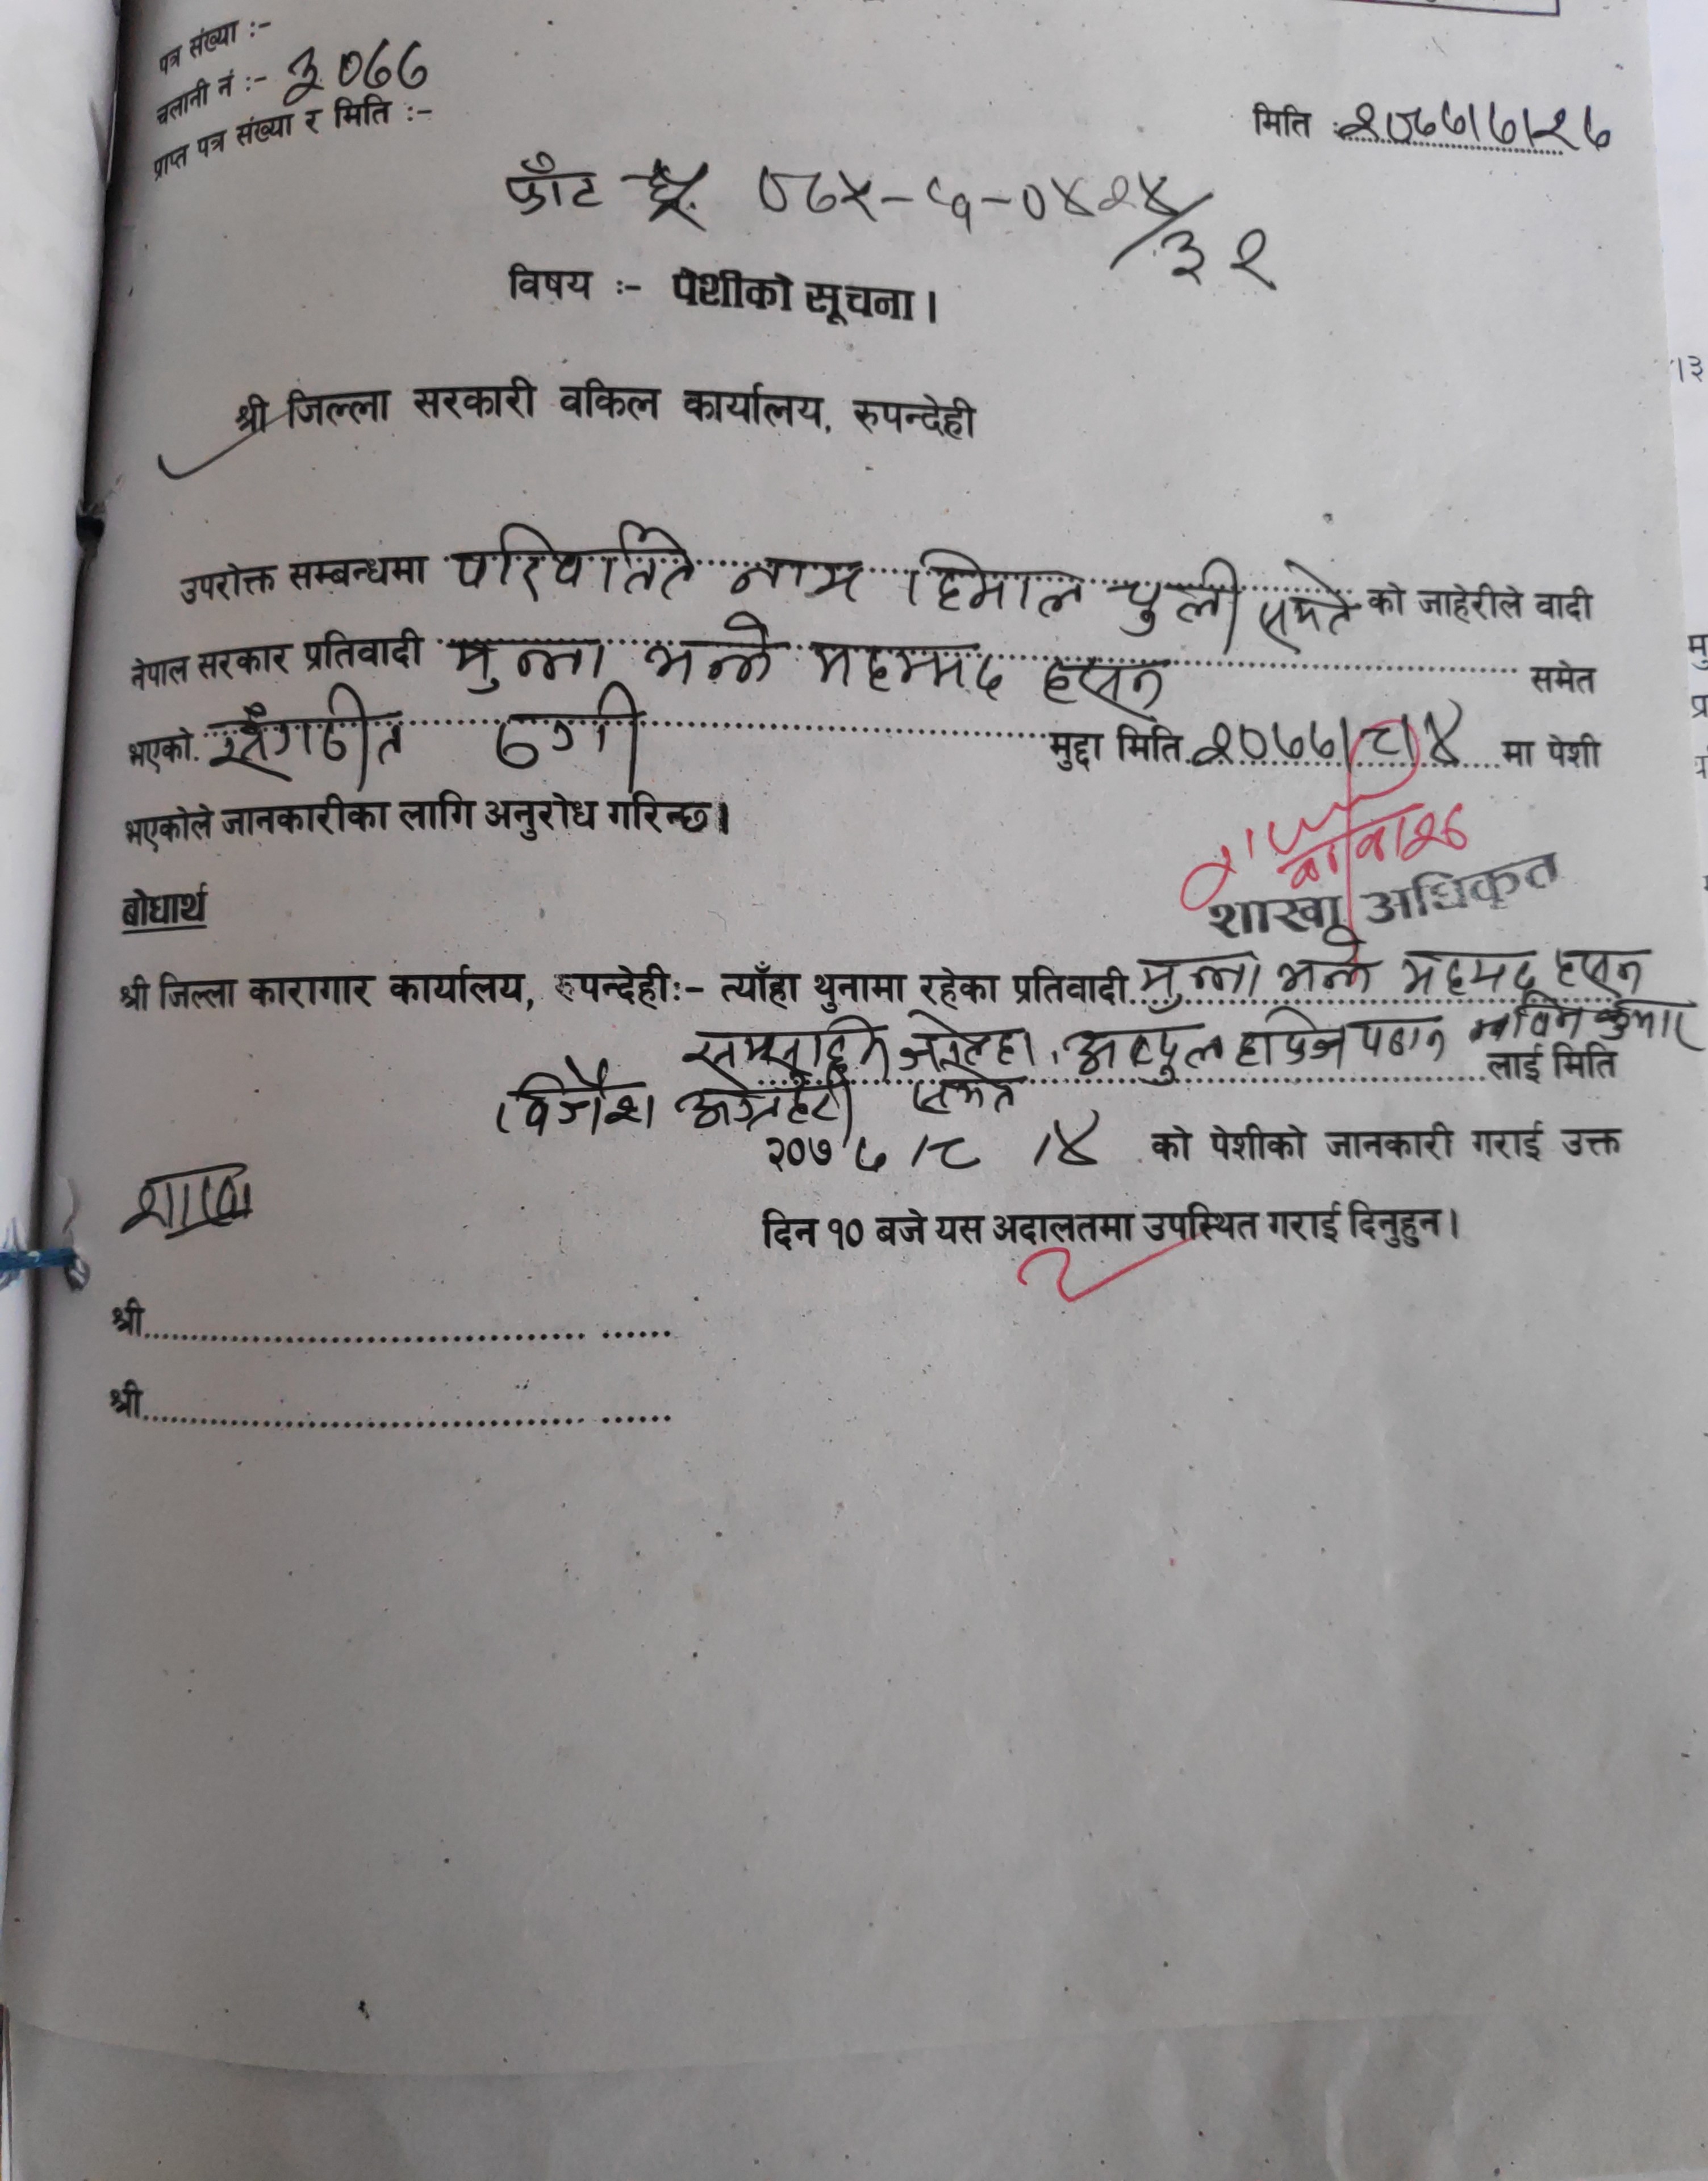 पत्र संख्या :-
चलानी नं :- ३०७७
प्राप्त पत्र संख्या र मिति :-
मिति :२०७७।७।२७
फाँट ०७५-८९-०४२४/३२
विषय :- पेशीको सूचना।
श्री जिल्ला सरकारी वकिल कार्यालय, रुपन्देही
उपरोक्त सम्बन्धमा परिवर्तित नाम हिमाल चुली समेत को जाहेरीले वादी
नेपाल सरकार प्रतिवादी मुन्ना भन्ने महम्मद हसन समेत
भएको संगठीत ठगी मुद्दा मिति २०७७।८।४ मा पेशी
भएकोले जानकारीका लागि अनुरोध गरिन्छ।
शाखा अधिकृत
बोधार्थ
श्री जिल्ला कारागार कार्यालय, रुपन्देही:- त्याँहा थुनामा रहेका प्रतिवादी मुन्ना भन्ने महमद हसन
अब्दुल हाफिज पठान कुमार
लाई मिति
विजेश अग्रहरी समेत
२०७७।८।४ को पेशीको जानकारी गराई उक्त
शाखा
दिन १० बजे यस अदालतमा उपस्थित गराई दिनुहुन।
श्री
श्री